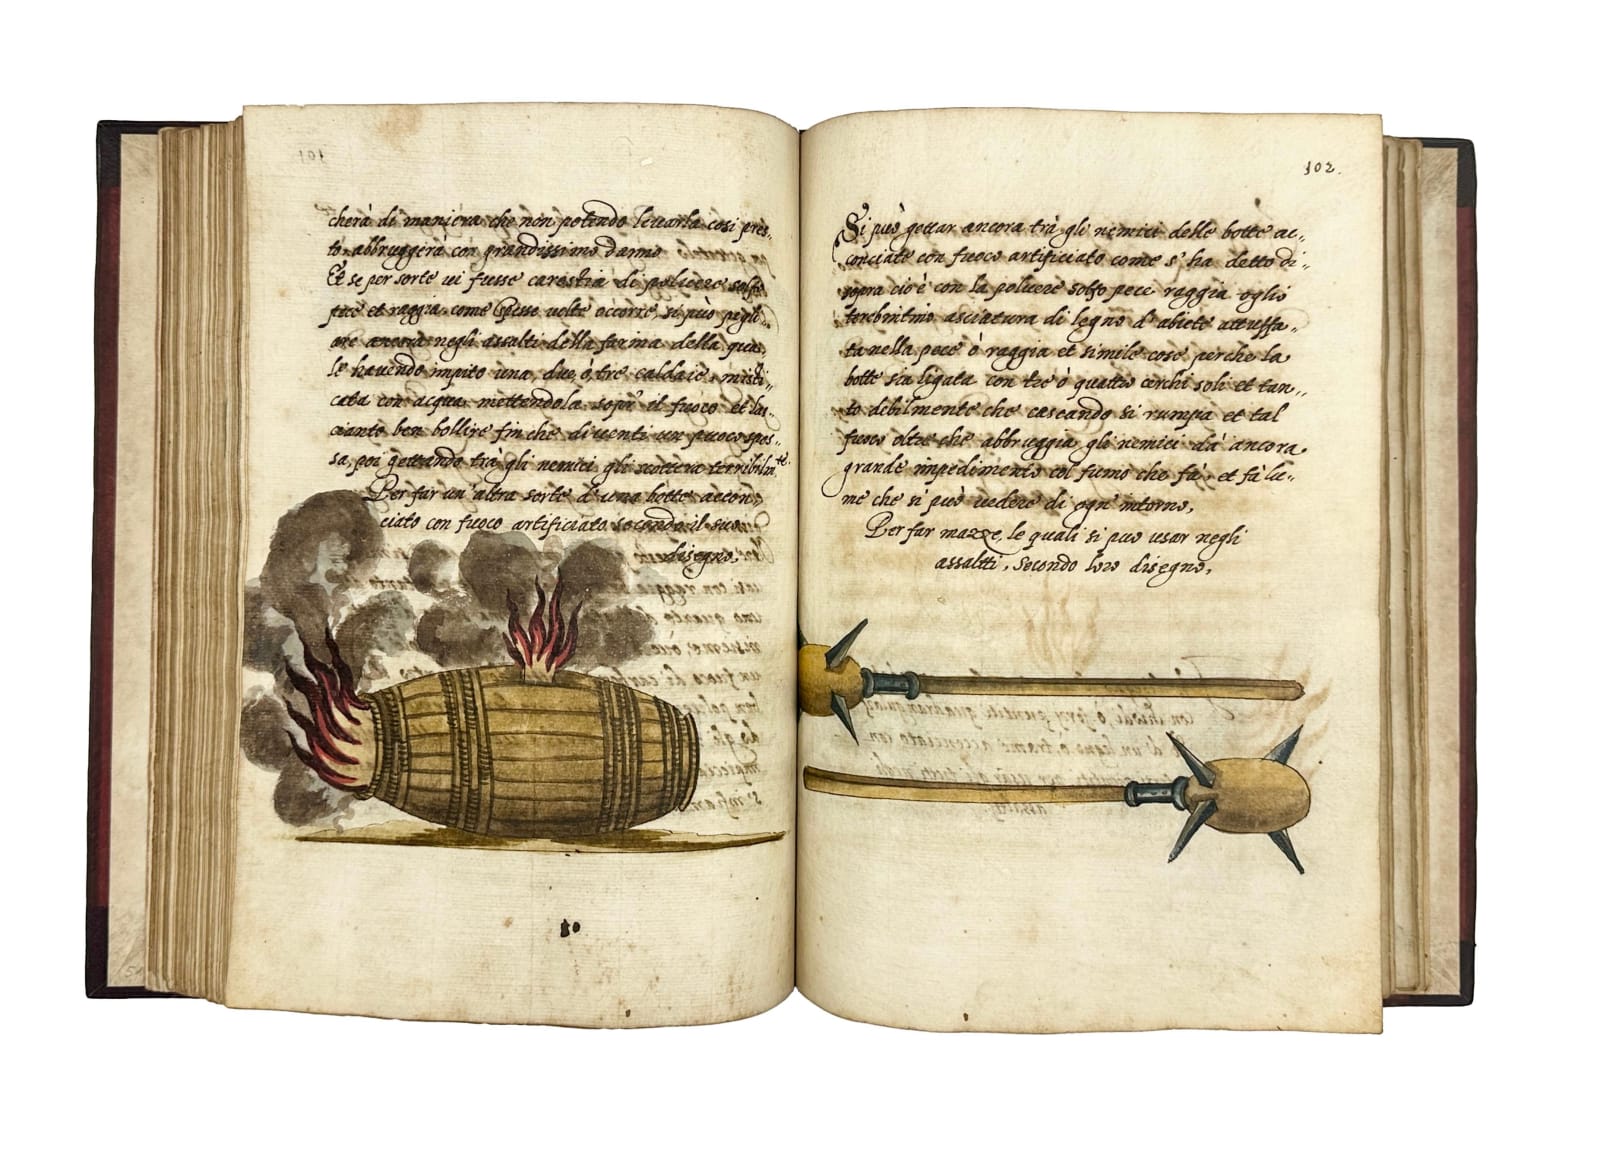 cherà di maniera che non potendo levarla così pres-
to abbruggerà con grandissimo danno
Et se per sorte ui fusse carestia di poluere solfo
pece et raggia come spesse uolte occorre, si può pigli-
are ancora negli assalti della farina della qua-
le hauendo impito una, due, ò, tre caldaie misti-
cata con acqua mettendola sopr' il fuoco et la-
ciando ben bollire finche diuenti un puoco spes-
sa, poi gettando trà gli nemici gli scotterà terribilmte.
Per far un'altra sorte d'una botte accon-
ciato con fuoco artificiato secondo il suo
disegno,
102.
Si può gettar ancora trà gli nemici delle botte ac-
conciate con fuoco artificiato come s'ha detto di-
sopra cio è con la poluere solfo pece raggia oglio
terebintino asciatura di legno d'abiete attuffa-
ta nella pece ò raggia et simile cose perche la
botte sia ligata con tre ò quattro cerchi soli et tan-
to debilmente che cascando si rumpa et tal
fuoco oltre che abbruggia gli nemici dà ancora
grande impedimento col fumo che fà, et fà lu-
me che si può uedere di ogn' intorno,
Per far mazze, le quali si puo usar negli
assaltti, secondo loro disegno,